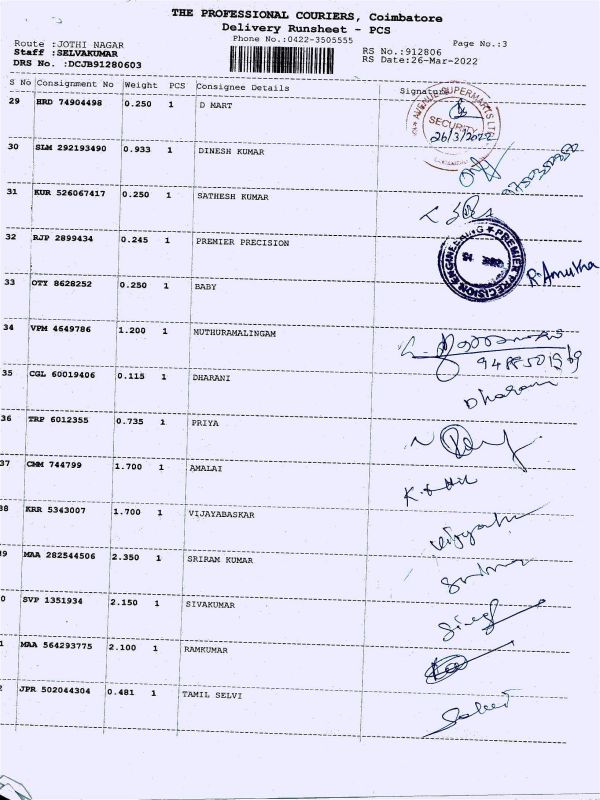 THE PROFESSIONAL COURIERS, Coimbatore
Delivery Runsheet - PCS
Phone No.:0422-3505555
Page No.:3
Route :JOTHI NAGAR
RS No.:912806
Staff :SELVAKUMAR
RS Date:26-Mar-2022
DRS No. :DCJB91280603
S No Consignment No Weight PCS Consignee Details Signature
29 HRD 74904498 0.250 1 D MART
AVENUE SUPERMARTS LTD
SECURITY
26/3/2022
30 SLM 292193490 0.933 1 DINESH KUMAR
31 KUR 526067417 0.250 1 SATHESH KUMAR
32 RJP 2899434 0.245 1 PREMIER PRECISION
PREMIER PRECISION ENGINEERING
R. Amutha
33 OTY 8628252 0.250 1 BABY
34 VPM 4649786 1.200 1 MUTHURAMALINGAM
9488501969
35 CGL 60019406 0.115 1 DHARANI
Dharani
36 TRP 6012355 0.735 1 PRIYA
37 CMM 744799 1.700 1 AMALAI
38 KRR 5343007 1.700 1 VIJAYABASKAR
39 MAA 282544506 2.350 1 SRIRAM KUMAR
0 SVP 1351934 2.150 1 SIVAKUMAR
1 MAA 564293775 2.100 1 RAMKUMAR
2 JPR 502044304 0.481 1 TAMIL SELVI